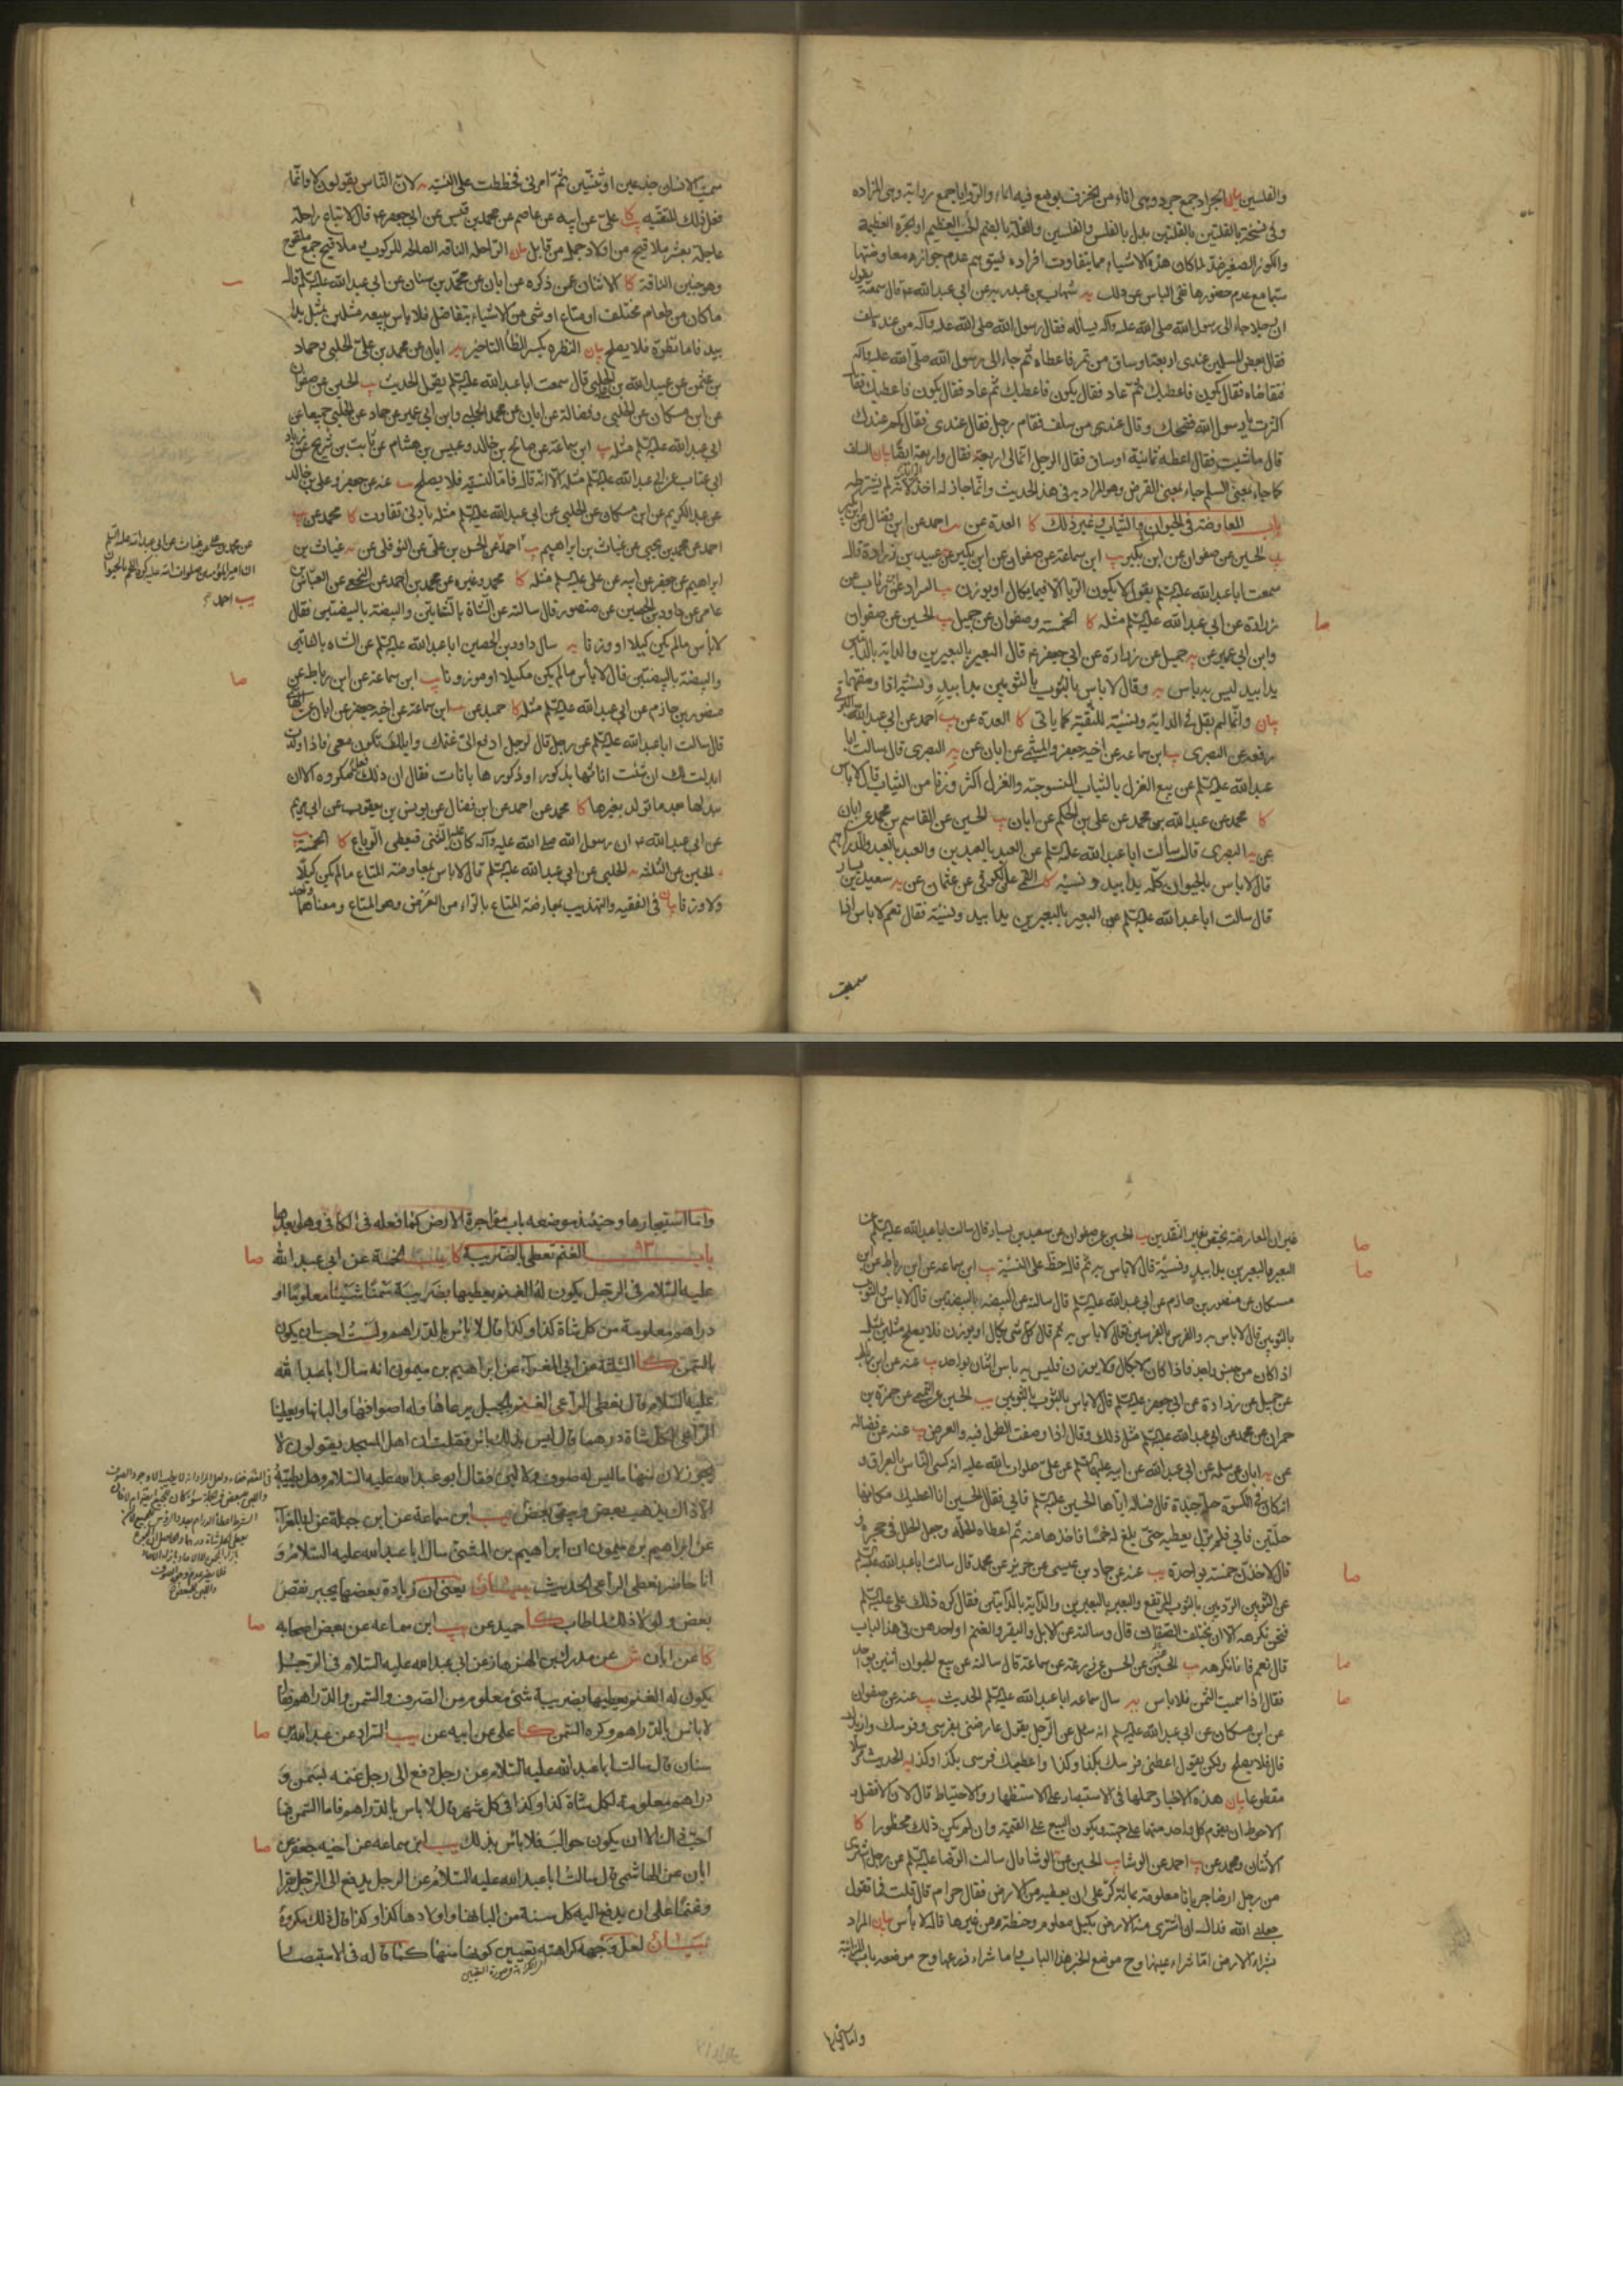 والفلسين بيان الجرار جمع جرة وهي اناء من الخزف يوضع فيه الماء والروايا جمع راوية وهي المزاده
وفي نسخة بالقلتين بدل بالفلس والفلسين والقلة بالضم الحب العظيم او الجرة العظيمة
والكوز الصغير ضد لما كان هذه الاشياء مما يتفاوت افراده فيتوهم عدم جوازه معاوضتها
سيما مع عدم حضورها نفى الباس عن ذلك يه شهاب بن عبد ربه عن ابي عبد الله ع قال سمعته يقول
ان رجلا جاء الى رسول الله صلى الله عليه وآله يساله فقال رسول الله صلى الله عليه وآله من عنده سلف
فقال بعض المسلمين عندي اربعة اوساق من تمر فاعطاه ثم جاء الى رسول الله صلى الله عليه وآله
فتقاضاه فقال يكون فاعطيك ثم عاد فقال يكون فاعطيك ثم عاد فقال يكون فاعطيك فقال
اكثرت يا رسول الله فضحك وقال عندي من سلف فقام رجل فقال عندي فقال كم عندك
قال ما شئت فقال اعطه ثمانية اوساق فقال الرجل انما لي اربعة فقال واربعة ايضا بيان السلف
كما جاء بمعنى السلم جاء بمعنى القرض وهو المراد به في هذا الحديث وانما جاز له اخذ الزيادة لانه لم يشترطه
باب المعاوضة في الحيوان والثياب وغير ذلك كا العدة عن احمد عن ابن فضال عن ابن بكير
يب الحسين عن صفوان عن ابن بكير يب ابن سماعة عن صفوان عن ابن بكير عن عبيد بن زرارة قال
سمعت ابا عبد الله عليه السلم يقول لا يكون الربا الا فيما يكال او يوزن يب السراد عن ابن رئاب عن
زرارة عن ابي عبد الله عليه السلم مثله كا الخمسة وصفوان عن جميل يب الحسين عن صفوان
صا
وابن ابي عمير عن يه جميل عن زرارة عن ابي جعفر ع قال البعير بالبعيرين والدابة بالدابتين
يدا بيد ليس به باس يه وقال لا باس بالثوب بالثوبين يدا بيد ونسيئة اذا وصفتهما
بيان وانما لم يقل في الدابة ونسيئة للتقية كما ياتي كا العدة عن يب احمد عن ابي عبد الله البرقي
رفعه عن البصري يب ابن سماعة عن اخيه جعفر والميثمي عن ابان عن يه البصري قال سالت ابا
عبد الله عليه السلم عن بيع الغزل بالثياب المنسوجة والغزل اكثر وزنا من الثياب قال لا باس
كا محمد عن عبد الله بن محمد عن علي بن الحكم عن ابان يب الحسين عن القاسم بن محمد عن ابان
عن يه البصري قال سالت ابا عبد الله عليه السلم عن العبد بالعبدين والعبد بالعبد والدراهم
قال لا باس بالحيوان كله يدا بيد ونسيئة كا القمي عن الكوفي عن عثمان عن يه سعيد بن يسار
قال سالت ابا عبد الله عليه السلم عن البعير بالبعيرين يدا بيد ونسيئة فقال نعم لا باس اذا
سميت
سميت الاسنان جذعين او ثنيين ثم امرني فخططت على النسيئة يه لان الناس يقولون لا وانما
فعل ذلك للتقية كا علي عن ابيه عن عاصم عن محمد بن قيس عن ابي جعفر ع قال لا تباع راحلة
عاجلة بعشر ملاقيح من اولاد جمل من قابل بيان الراحلة الناقة الصالحة للركوب والملاقيح جمع ملقوح
وهو جنين الناقة كا الاثنان عمن ذكره عن ابان عن محمد بن سنان عن ابي عبد الله عليه السلم قال
ما كان من طعام مختلف او متاع او شئ من الاشياء يتفاضل فلا باس ببيعه مثلين بمثل يدا
بيد فاما نظرة فلا يصلح بيان النظرة بكسر الظا التاخير يه ابان عن محمد بن علي الحلبي وحماد
بن عثمن عن عبيد الله بن الحلبي قال سمعت ابا عبد الله عليه السلم يقول الحديث يب الحسين عن صفوان
عن ابن مسكان عن الحلبي وفضالة عن ابان عن محمد الحلبي وابن ابي عمير عن حماد عن الحلبي جميعا عن
ابي عبد الله عليه السلم مثله يب ابن سماعة عن صالح بن خالد وعبيس بن هشام عن ثابت بن شريح عن زياد
ابي عتاب عن ابي عبد الله عليه السلم مثله الا انه قال فاما النسيئة فلا يصلح يب عنه عن جعفر وعلي بن خالد
عن عبد الكريم عن ابن مسكان عن الحلبي عن ابي عبد الله عليه السلم مثله بادنى تفاوت كا محمد عن يب
احمد عن محمد بن يحيى عن غياث بن ابراهيم يب احمد عن الحسن بن علي عن النوفلي عن يه غياث بن
ابراهيم عن جعفر عن ابيه عن علي عليه السلم مثله كا محمد وغيره عن محمد بن احمد عن النخعي عن العباس بن
عامر عن داود بن الحصين عن منصور قال سالته عن الشاة بالشاتين والبيضة بالبيضتين فقال
لا باس ما لم يكن كيلا او وزنا يه سال داود بن الحصين ابا عبد الله عليه السلم عن الشاه بالشاتين
صا
والبيضة بالبيضتين قال لا باس ما لم يكن مكيلا او موزونا يب ابن سماعة عن ابن رباط عن
منصور بن حازم عن ابي عبد الله عليه السلم مثله كا حميد عن يب ابن سماعة عن اخيه جعفر عن ابان عن
قال سالت ابا عبد الله عليه السلم عن رجل قال لرجل ادفع الي غنمك وابلك تكون معي فاذا ولدت
ابدلت لك ان شئت اناثها بذكور او ذكورها باناث فقال ان ذلك فعل مكروه الا ان
يبدلها بعد ما تولد بغيرها كا محمد عن احمد عن ابن فضال عن يونس بن يعقوب عن ابي مريم
عن ابي عبد الله ع ان رسول الله صلى الله عليه وآله كان عليه الثني فيعطي الرباع كا الخمسة
يب الحسين عن الثلثة يه الحلبي عن ابي عبد الله عليه السلم قال لا باس بمعاوضة المتاع ما لم يكن كيلا
ولا وزنا بيان في الفقيه والتهذيب بمعارضة المتاع بالراء من العرض وهو المتاع ومعناهما واحد
عن محمد بن يحيى عن غياث عن ابي عبد الله عليه السلم
ان امير المؤمنين صلوات الله عليه كره اللحم بالحيوان
يب احمد
غير ان المعارضة يختص بغير النقدين يب الحسين عن صفوان عن سعيد بن يسار قال سالت ابا عبد الله عليه السلم عن
صا
البعير بالبعيرين يدا بيد ونسيئة قال لا باس به ثم قال خط على النسيئة يب ابن سماعة عن ابن رباط عن ابن
صا
مسكان عن منصور بن حازم عن ابي عبد الله عليه السلم قال سالته عن البيضة بالبيضتين قال لا باس والثوب
بالثوبين قال لا باس به والفرس بالفرسين فقال لا باس به ثم قال كل شئ يكال او يوزن فلا يصلح مثلين بمثل
اذا كان من جنس واحد فاذا كان لا يكال ولا يوزن فليس به باس اثنان بواحد يب عنه عن ابن رباط
عن جميل عن زرارة عن ابي جعفر عليه السلم قال لا باس بالثوب بالثوبين يب الحسين عن القسم عن حمزة بن
حمران عن محمد عن ابي عبد الله عليه السلم مثل ذلك وقال اذا وصفت الطول فيه والعرض يب عنه عن فضالة
عن يه ابان عن سلمة عن ابي عبد الله عن ابيه عليهما السلم عن علي صلوات الله عليه انه كسى الناس بالعراق و
ان كان في الكسوة حلة جيدة قال فساله اياها الحسين عليه السلم فابى فقال الحسين انا اعطيك مكانها
حلتين فابى فلم يزل يعطيه حتى بلغ له خمسا فاخذها منه ثم اعطاه الحلة وجعل الحلل في حجره و
قال لاخذن خمسة بواحدة يب عنه عن حماد بن عيسى عن حريز عن محمد قال سالت ابا عبد الله عليه السلم
صا
عن الثوبين الرديين بالثوب المرتفع والبعير بالبعيرين والدابة بالدابتين فقال كره ذلك علي عليه السلم
فنحن نكرهه الا ان تختلف الصنفان قال وسالته عن الابل والبقر والغنم او احدهن في هذا الباب
قال نعم فانا نكرهه يب الحسين عن الحسن عن زرعة عن سماعة قال سالته عن بيع الحيوان اثنين بواحد
صا
فقال اذا سميت الثمن فلا باس يه سال سماعه ابا عبد الله عليه السلم الحديث يب عنه عن صفوان
صا
عن ابن مسكان عن ابي عبد الله عليه السلم انه سئل عن الرجل يقول عارضني بفرسي وفرسك وازيدك
قال فلا يصلح ولكن يقول اعطني فرسك بكذا وكذا واعطيك فرسي بكذا وكذا يه الحديث مرسلا
مقطوعا بيان هذه الاخبار حملها في الاستبصار على الاستظهار والاحتياط قال لان الافضل و
الاحوط ان يقوم كل واحد منهما على جهته ويكون البيع على القيمة وان لم يكن ذلك محظورا كا
الاثنان ومحمد عن يب احمد عن الوشا يب الحسين عن الوشا قال سالت الرضا عليه السلم عن رجل اشترى
من رجل ارضا جربانا معلومة بمائة كر على ان يعطيه من الارض فقال حرام قال قلت فما تقول
جعلني الله فداك ان اشتري منه الارض بكيل معلوم وحنطة من غيرها قال لا بأس بيان المراد
بشراء الارض اما شراء عينها وح موضع الخبر هذا الباب واما شراء زرعها وح موضعه باب المزابنة
واما استيجارها
واما استيجارها وحينئذ موضعه باب مؤاجرة الارض كما فعله في الكافي وهل بعدها
باب ٩٣ الغنم تعطى بالضريبة كا يب الخمسة عن ابي عبد الله
صا
عليه السلام في الرجل يكون له الغنم يعطيها بضريبة سمنا شيئا معلوما او
دراهم معلومة من كل شاة كذا وكذا قال لا باس بالدراهم ولست احب ان يكون
بالسمن كا الثلثة عن ابي المغرا عن ابراهيم بن ميمون انه سال ابا عبد الله
عليه السلام قال يعطى الراعي الغنم بالجبل يرعاها وله اصوافها والبانها ويعطينا
الراعي لكل شاة درهما قال ليس بذلك باس فقلت ان اهل المسجد يقولون لا
يجوز لان منها ما ليس له صوف ولا لبن فقال ابو عبد الله عليه السلام وهل يطيبه
الا ذاك يذهب بعض ويبقى بعض يب ابن سماعة عن ابن جبلة عن ابي المغرا
عن ابراهيم بن ميمون ان ابراهيم بن المثنى سال ابا عبد الله عليه السلام و
انا حاضر نعطى الراعي الحديث بيان يعني ان زيادة بعضها يجبر نقص
بعض ولو لا ذلك لما طاب كا حميد عن يب ابن سماعه عن بعض اصحابه
صا
كا عن ابان ش عن مدرك بن الهزهاز عن ابي عبد الله عليه السلام في الرجل
يكون له الغنم يعطيها بضريبة شئ معلوم من الصوف والسمن والدراهم قال
لا باس بالدراهم وكره السمن كا علي عن ابيه عن يب السراد عن عبد الله بن
صا
سنان قال سالت ابا عبد الله عليه السلام عن رجل دفع الى رجل غنمه بسمن و
دراهم معلومة لكل شاة كذا وكذا في كل شهر قال لا باس بالدراهم فاما السمن فما
احب ذاك الا ان يكون حوالب فلا باس بذلك يب ابن سماعه عن اخيه جعفر عن
صا
ابان عن الهاشمي قال سالت ابا عبد الله عليه السلام عن الرجل يدفع الى الرجل بقرا
وغنما على ان يدفع اليه كل سنة من البانها واولادها كذا وكذا قال ذلك مكروه
بيان لعل وجهه كراهته تعيين كونها منها كما قاله في الاستبصار